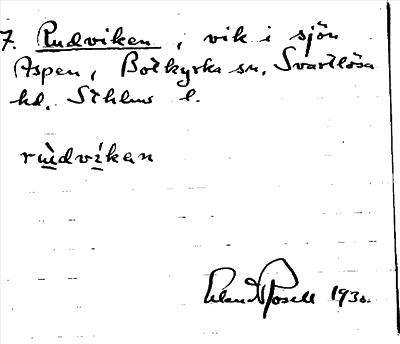 7. Rudviken, vik i sjön
Aspen, Botkyrka sn, Svartlösa
hd, Sthlms l.
rùdvíkan
1930.